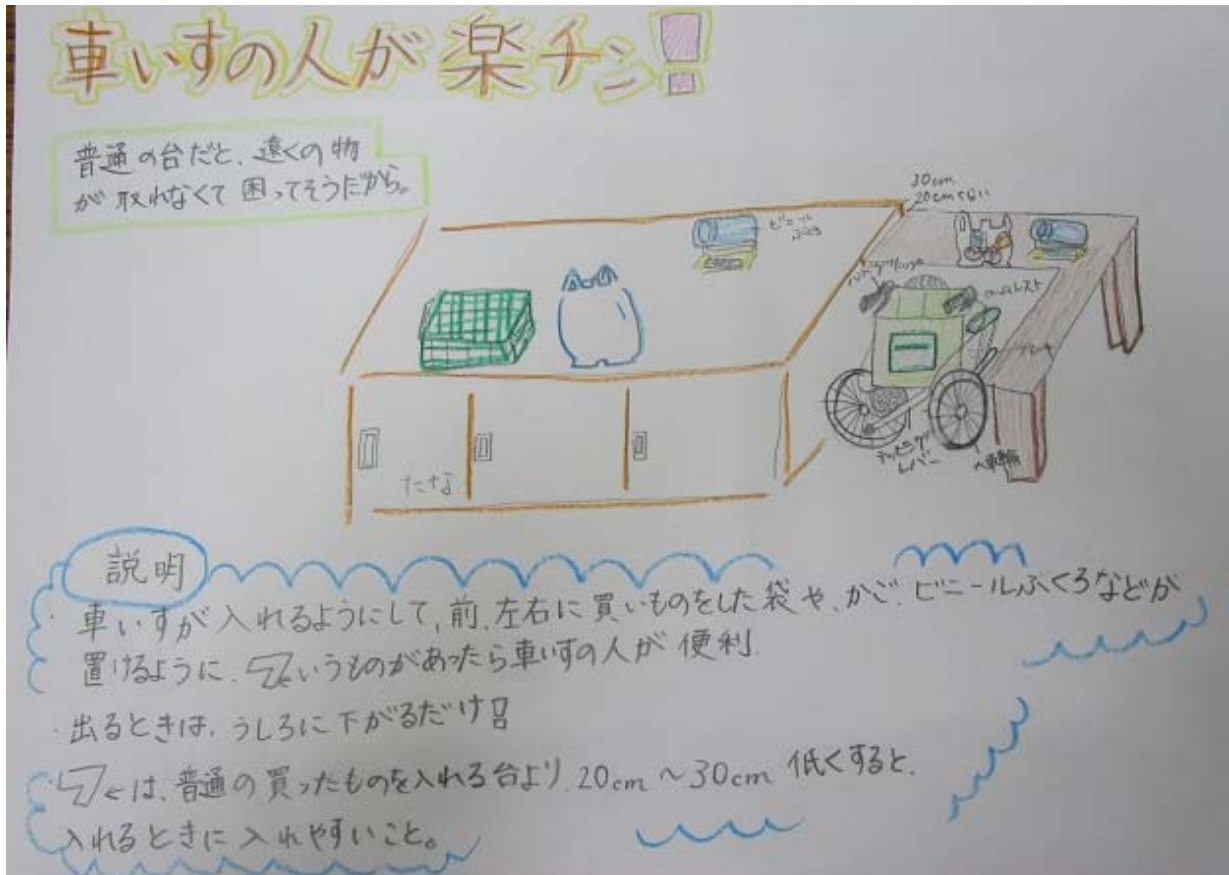 車いすの人が楽チン!
普通の台だと、遠くの物
が取れなくて困ってそうだから。
30cm
20cmくらい
ビニール
ふくろ
ブレーキ
ティッピング
レバー
たな
説明
・車いすが入れるようにして、前、左右に買いものをした袋や、かご、ビニールふくろなどが
置けるように、いうものがあったら車いすの人が便利
・出るときは、うしろに下がるだけ!!
・は、普通の買ったものを入れる台より、20cm～30cm低くすると、
入れるときに入れやすいこと。